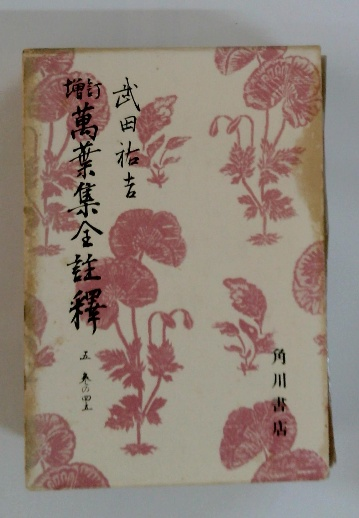 武田祐吉
増訂
萬葉集全註釋
五 巻の四・五
角川書店